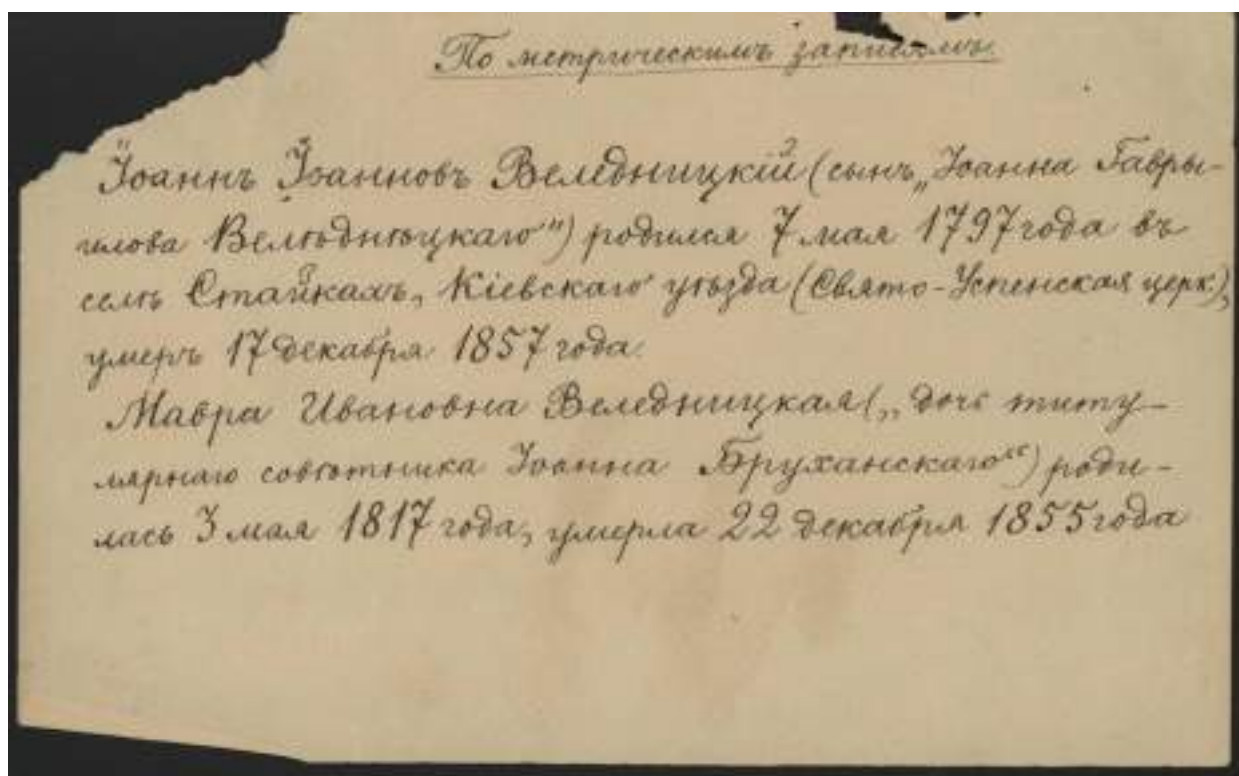 По метрическимъ записямъ
Іоаннъ Іоанновъ Веледницкій (сынъ „Іоанна Гавры-
илова Велѣднѣцкаго") родился 7 мая 1797 года въ
селѣ Стайкахъ, Кіевскаго уѣзда (Свято-Успенская церк),
умеръ 17 декабря 1857 года.
Мавра Ивановна Веледницкая („дочь титу-
лярнаго совѣтника Іоанна Бруханскаго") роди-
лась 3 мая 1817 года, умерла 22 декабря 1855 года